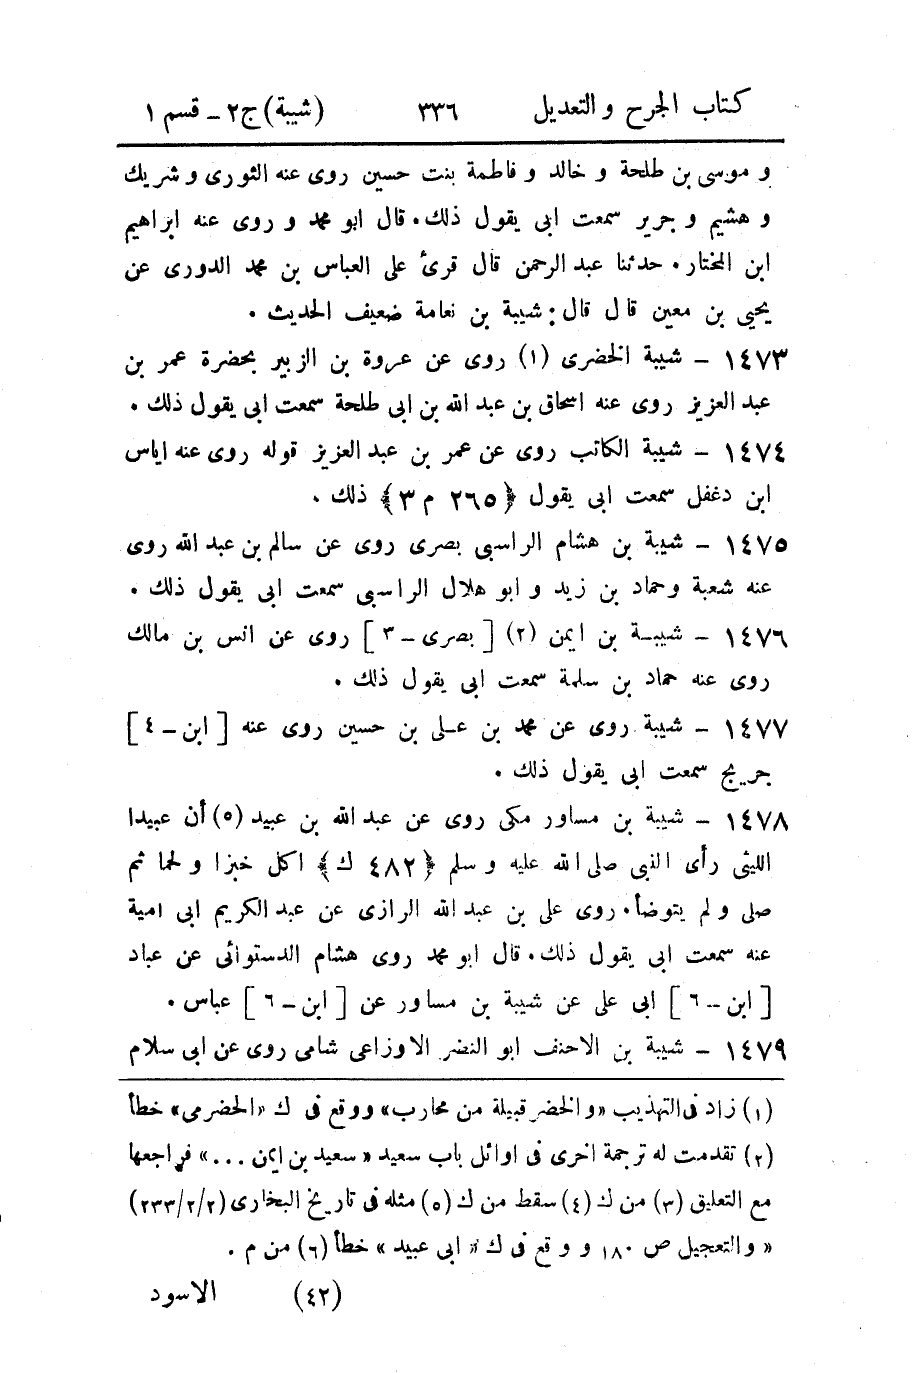 كتاب الجرح والتعديل ٣٣٦ (شيبة) ج٢ - قسم ١
و موسى بن طلحة و خالد و فاطمة بنت حسين روى عنه الثورى و شريك
و هشيم و جرير سمعت ابى يقول ذلك. قال ابو محمد و روى عنه ابراهيم
ابن المختار. حدثنا عبد الرحمن قال قرئ على العباس بن محمد الدورى عن
يحيى بن معين قال قال: شيبة بن نعامة ضعيف الحديث.
١٤٧٣ - شيبة الخضرى (١) روى عن عروة بن الزبير بحضرة عمر بن
عبد العزيز روى عنه اسحاق بن عبد الله بن ابى طلحة سمعت ابى يقول ذلك.
١٤٧٤ - شيبة الكاتب روى عن عمر بن عبد العزيز قوله روى عنه اياس
ابن دغفل سمعت ابى يقول ﴿٢٦٥ م ٣﴾ ذلك.
١٤٧٥ - شيبة بن هشام الراسبى بصرى روى عن سالم بن عبد الله روى
عنه شعبة وحماد بن زيد و ابو هلال الراسبى سمعت ابى يقول ذلك.
١٤٧٦ - شيبة بن ايمن (٢) [بصرى - ٣] روى عن انس بن مالك
روى عنه حماد بن سلمة سمعت ابى يقول ذلك.
١٤٧٧ - شيبة روى عن محمد بن على بن حسين روى عنه [ابن - ٤]
جريج سمعت ابى يقول ذلك.
١٤٧٨ - شيبة بن مساور مكى روى عن عبد الله بن عبيد (٥) أن عبيدا
الليثى رأى النبى صلى الله عليه و سلم ﴿٤٨٢ ك﴾ اكل خبزا و لحما ثم
صلى و لم يتوضأ. روى على بن عبد الله الرازى عن عبد الكريم ابى امية
عنه سمعت ابى يقول ذلك. قال ابو محمد روى هشام الدستوائى عن عباد
[ابن - ٦] ابى على عن شيبة بن مساور عن [ابن - ٦] عباس.
١٤٧٩ - شيبة بن الاحنف ابو النضر الاوزاعى شامى روى عن ابى سلام
(١) زاد فى التهذيب «والخضر قبيلة من محارب» ووقع فى ك «الحضرمى» خطأ
(٢) تقدمت له ترجمة اخرى فى اوائل باب سعيد «سعيد بن ايمن ...» فراجعها
مع التعليق (٣) من ك (٤) سقط من ك (٥) مثله فى تاريخ البخارى (٢/٢/٢٣٣)
« والتعجيل ص ١٨٠ و وقع فى ك « ابى عبيد » خطأ (٦) من م.
(٤٢) الاسود